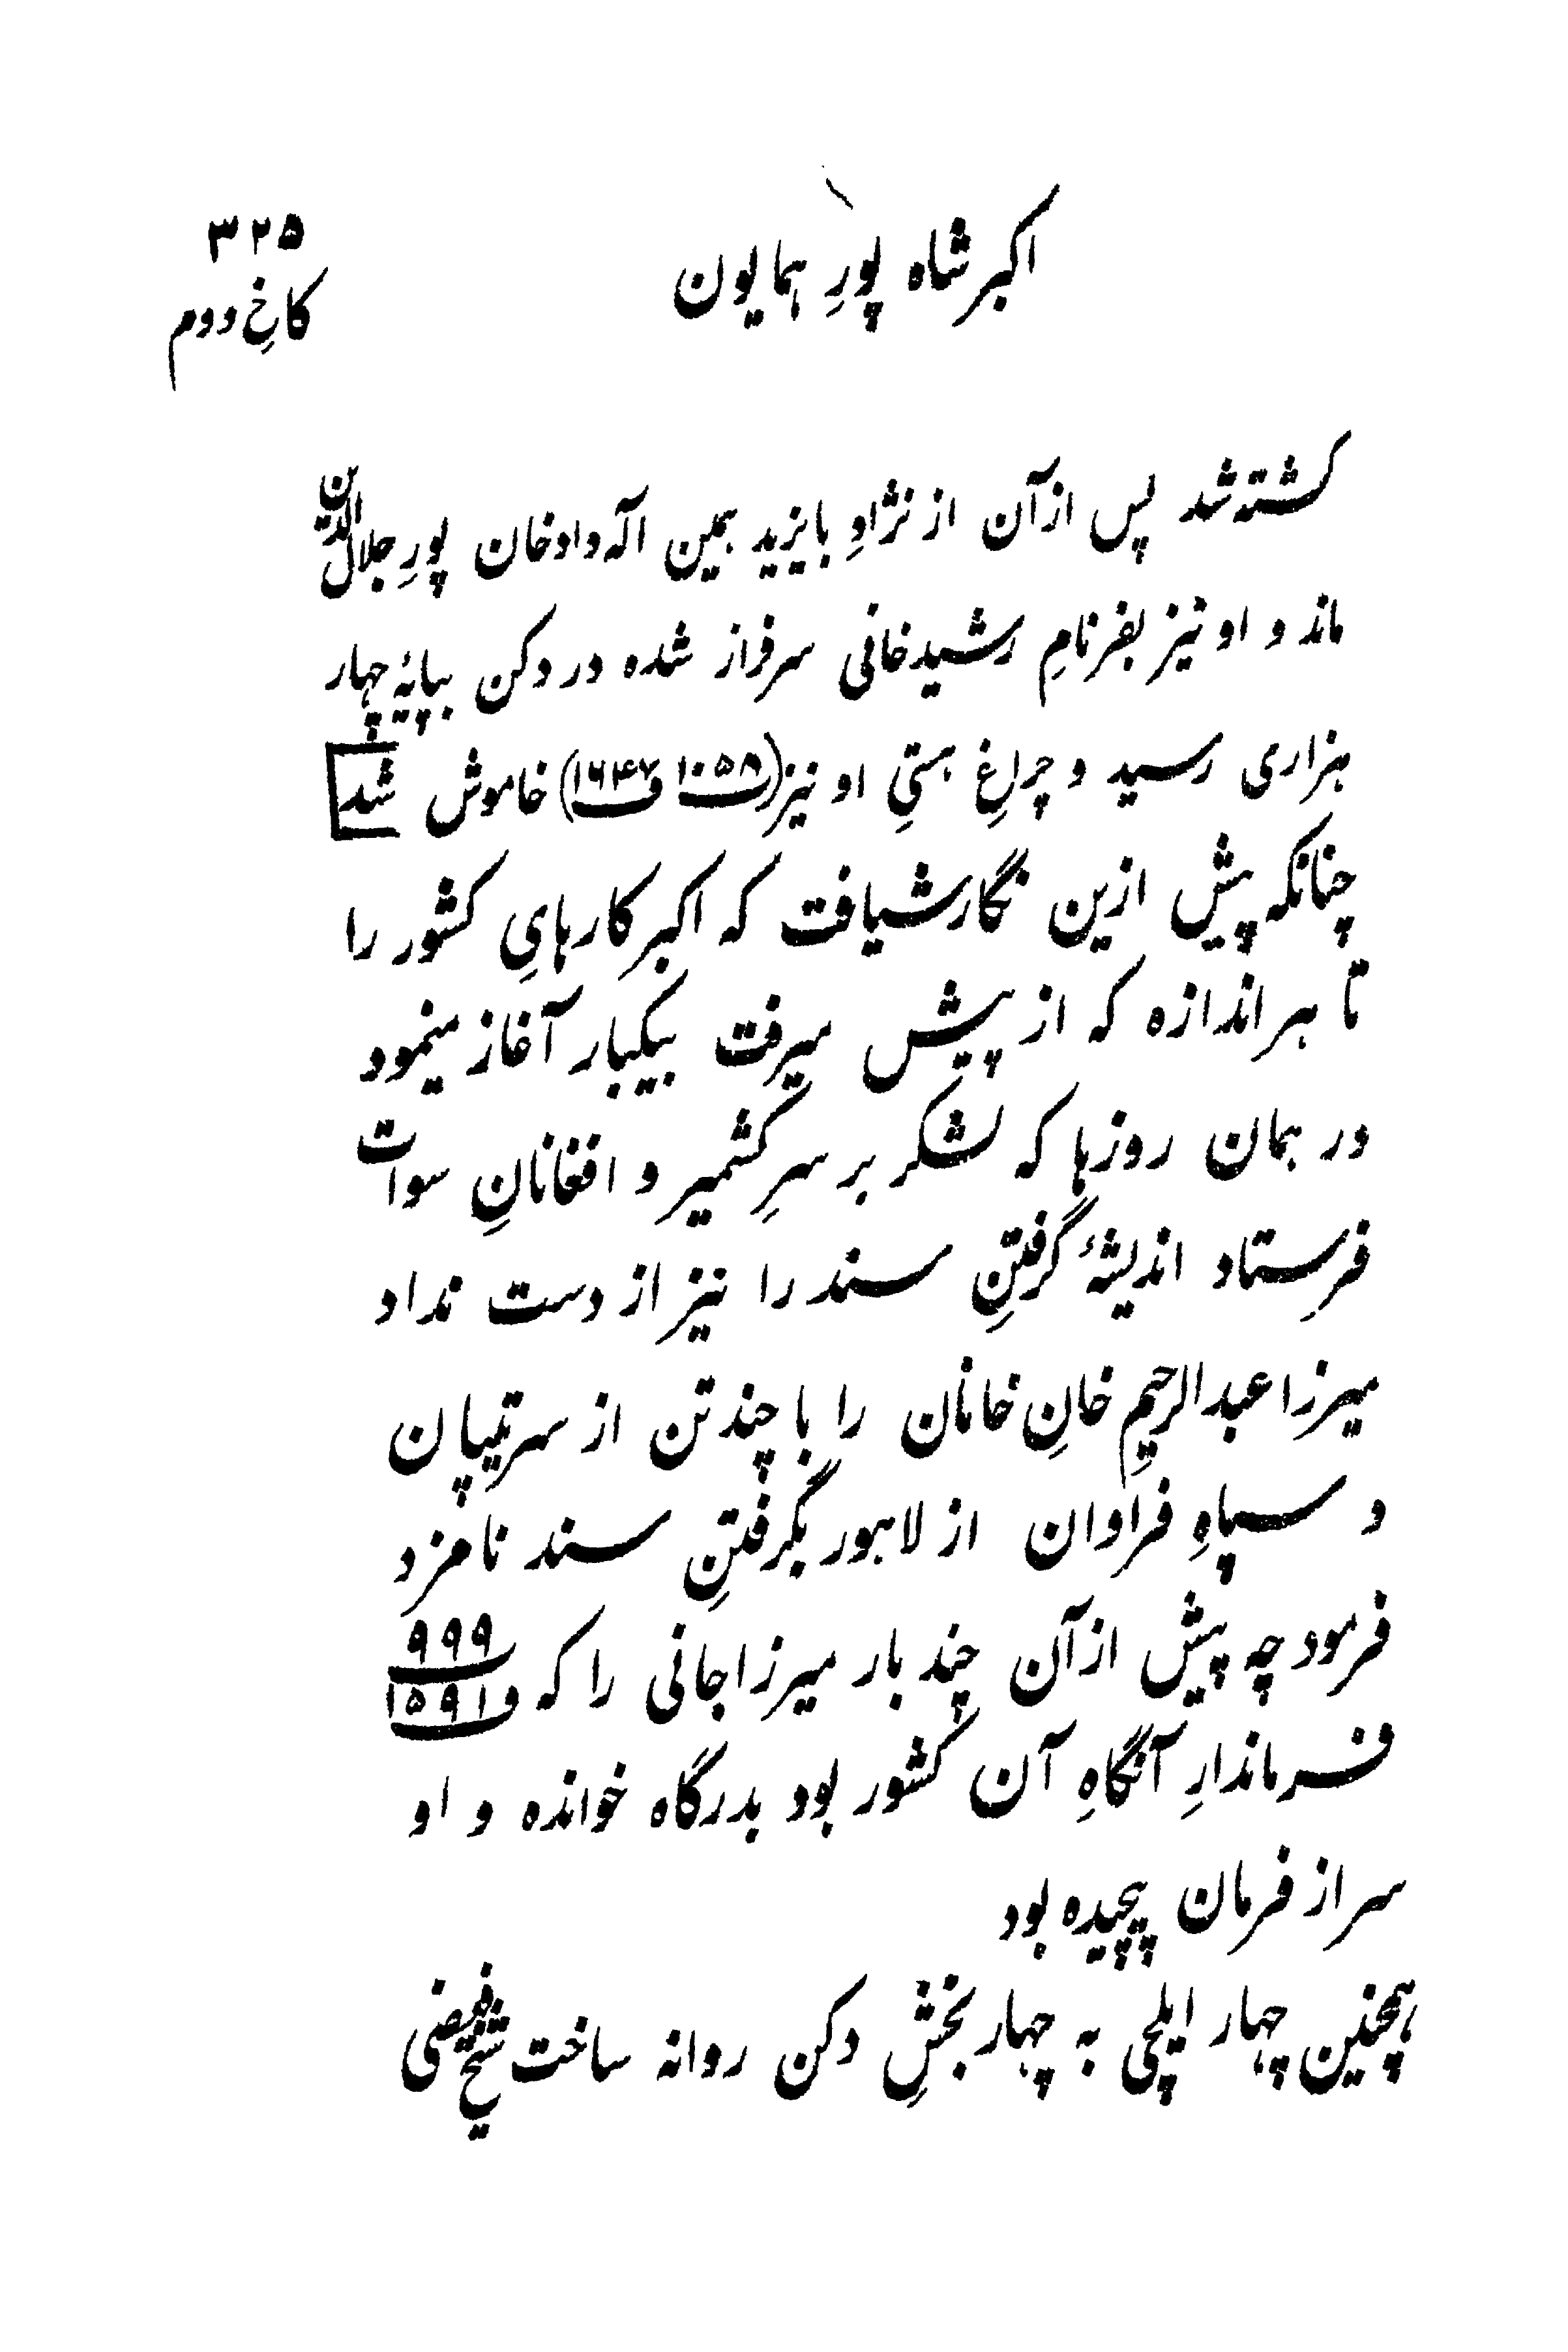 ۳۲۵
اکبر شاه پورِ همایون
کاخِ دوم
کشته شد پس از آن از نژادِ بایزید همین اله داد خان پورِ جلال الدین
ماند و او نیز بفرنامِ رشید خانی سرفراز شده در دکن بپایهٔ چهار
هزاری رسید و چراغِ هستیِ او نیز (۱۰۵۸ ۱۶۴۷) خاموش شد
چنانکه پیش ازین نگارش یافت که اکبر کارهایِ کشور را
تا هر اندازه که از پیش میرفت بیکبار آغاز مینمود
در همان روزها که لشکر بر سرِ کشمیر و افغانانِ سوات
فرستاد اندیشهٔ گرفتنِ سند را نیز از دست نداد
میرزا عبدالرحیمِ خانِ خانان را با چند تن از سرتیپان
و سپاهِ فراوان از لاهور بگرفتنِ سند نامزد
فرمود چه پیش از آن چند بار میرزا جانی را که ۹۹۹ ۱۵۹۱
فرماندارِ آنگاهِ آن کشور بود بدرگاه خوانده و او
سر از فرمان پیچیده بود
همچنین چهار ایلچی به چهار بخشِ دکن روانه ساخت شیخ فیضی